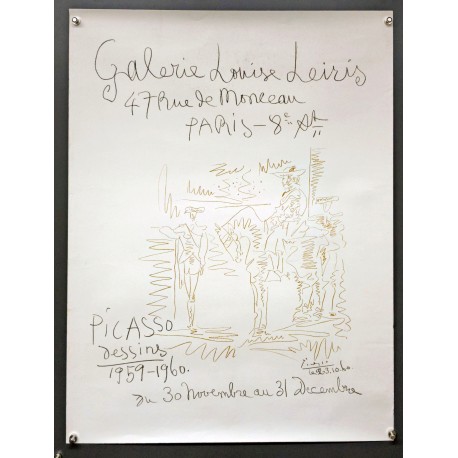 Galerie Louise Leiris
47 Rue de Monceau
PARIS - 8e Art
PICASSO
dessins
1959-1960.
du 30 Novembre au 31 Décembre
Picasso